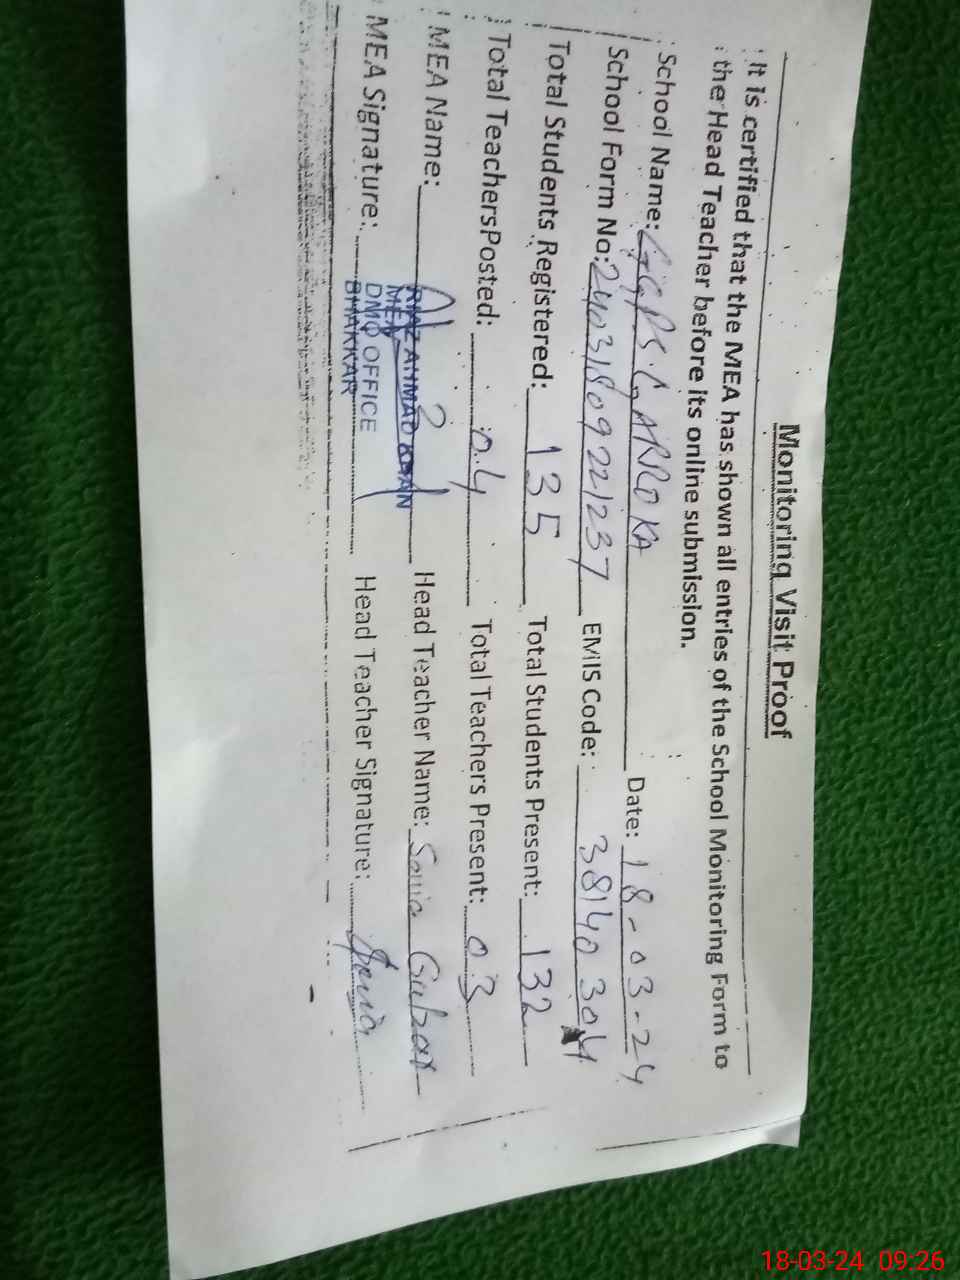 Monitoring Visit Proof
It is certified that the MEA has shown all entries of the School Monitoring Form to
the Head Teacher before its online submission.
School Name: GGPS GARROKA Date: 18-03-24
School Form No: 24031809221237 EMIS Code: 38140304
Total Students Registered: 135 Total Students Present: 132
Total TeachersPosted: 04 Total Teachers Present: 03
MEA Name: RIAZ AHMAD KHAN Head Teacher Name: Sonia Gulzar
MEA
MEA Signature: DMO OFFICE Head Teacher Signature: Sonia
BHAKKAR
18-03-24 09:26